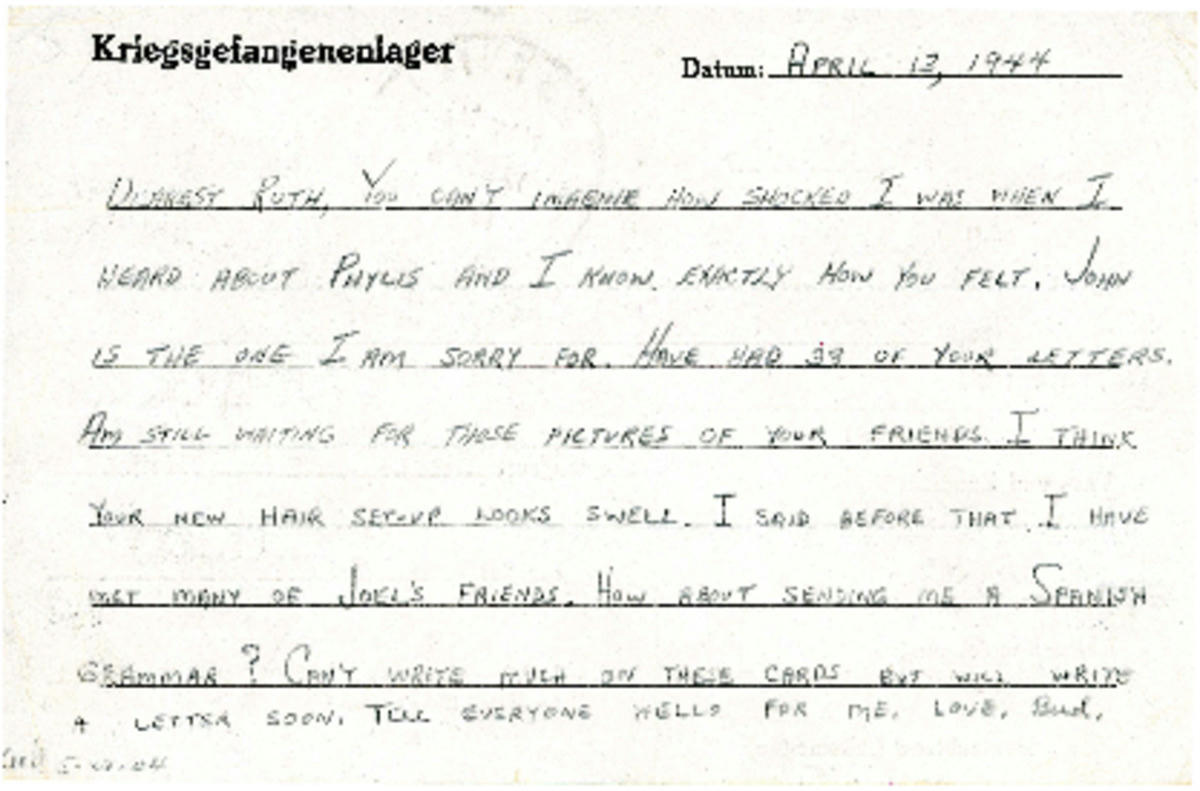 Kriegsgefangenenlager
Datum: APRIL 13, 1944
DEAREST RUTH, YOU CAN'T IMAGENE HOW SHOCKED I WAS WHEN I
HEARD ABOUT PHYLIS AND I KNOW EXACTLY HOW YOU FELT. JOHN
IS THE ONE I AM SORRY FOR. HAVE HAD 39 OF YOUR LETTERS.
AM STILL WAITING FOR THOSE PICTURES OF YOUR FRIENDS. I THINK
YOUR NEW HAIR SET-UP LOOKS SWELL. I SAID BEFORE THAT I HAVE
MET MANY OF JOEL'S FRIENDS. HOW ABOUT SENDING ME A SPANISH
GRAMMAR? CAN'T WRITE MUCH ON THESE CARDS BUT WILL WRITE
A LETTER SOON. TELL EVERYONE HELLO FOR ME. LOVE, Bud.